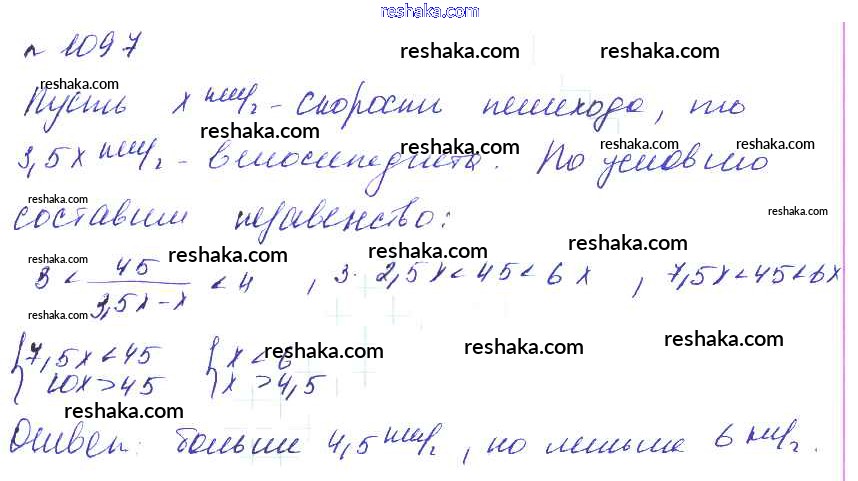 reshaka.com
n 1097
reshaka.com reshaka.com
reshaka.com
Пусть x км/г - скорость пешехода, то
reshaka.com reshaka.com reshaka.com
3,5x км/г - велосипедиста. По условию
reshaka.com reshaka.com
составим неравенство:
reshaka.com reshaka.com reshaka.com
3 < 45/(3,5x-x) < 4, 3·2,5x<45<6x, 7,5x<45<6x
reshaka.com reshaka.com reshaka.com
{7,5x<45 {x<6
{10x>45 {x>4,5
reshaka.com
Ответ: больше 4,5 км/г, но меньше 6 км/г.
reshaka.com reshaka.com reshaka.com